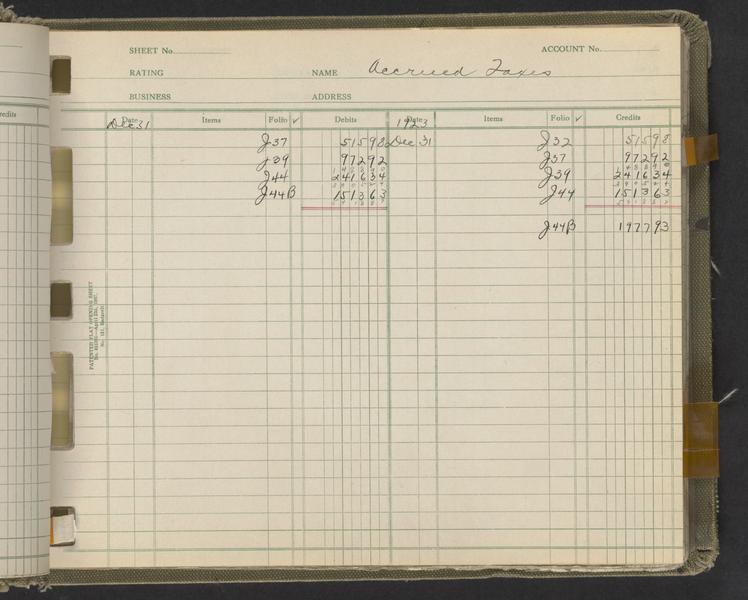 SHEET No. ACCOUNT No.
RATING NAME Accrued Taxes
BUSINESS ADDRESS
redits Date Items Folio ✓ Debits Date Items Folio ✓ Credits
Dec 31 1923
J37 515 98 Dec 31 J32 515 98
J39 972 92 J37 972 92
J44 2416 34 J39 2416 34
J44B 1513 63 J44 1513 63
J44B 1977 93
PATENTED FLAT OPENING SHEET